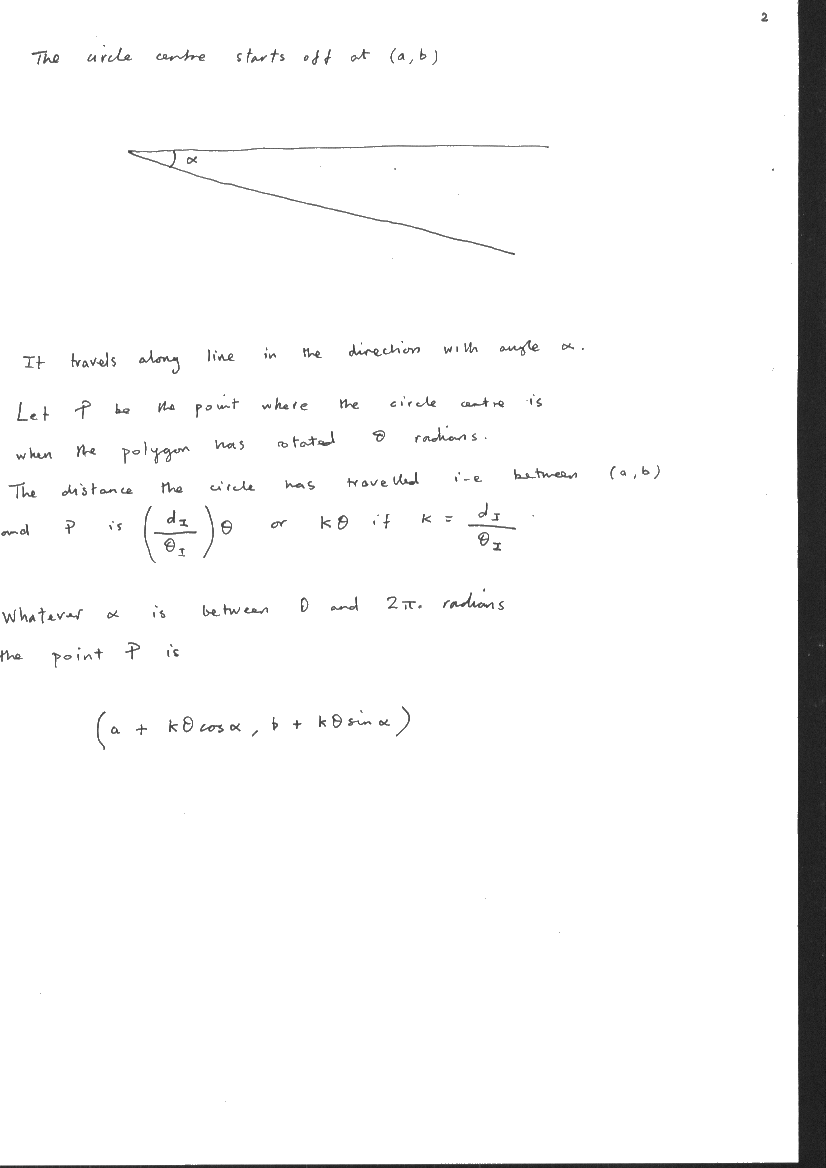 2
The circle centre starts off at (a,b)
α
It travels along line in the direction with angle α.
Let P be the point where the circle centre is
when the polygon has rotated θ radians.
The distance the circle has travelled i-e between (a,b)
and P is (d_I/θ_I)θ or kθ if k = d_I/θ_I
Whatever α is between 0 and 2π. radians
the point P is
(a + kθcosα, b + kθsinα)